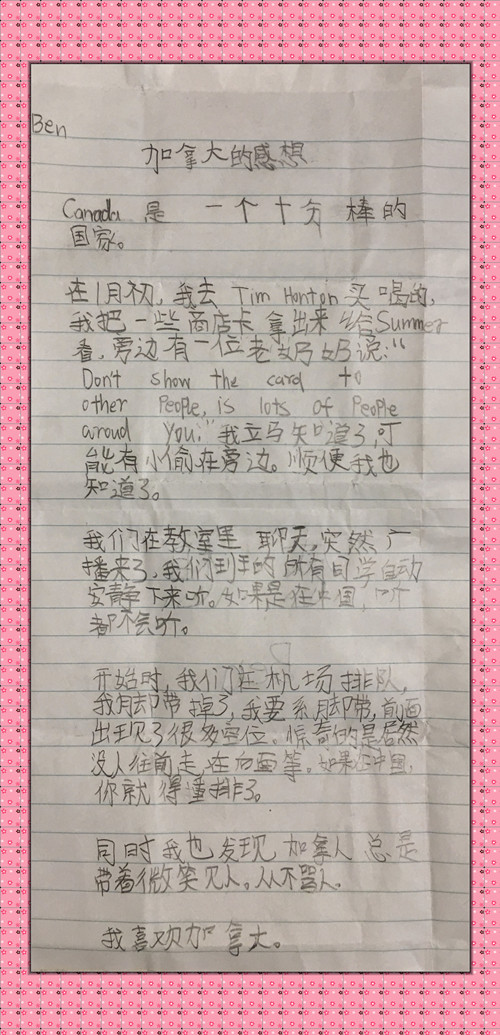 Ben
加拿大的感想
Canada 是 一个十分 棒的
国家。
在1月初,我去 Tim Honton 买 喝的,
我把一些商店卡 拿出来 给Summer
看,旁边有一位老奶奶说:“
Don't show the card to
other People, is lots of People
aroud you.”我立马知道了,可
能有小偷在旁边。顺便我也
知道了。
我们在教室里 聊天,突然广
播来了,我们班的所有同学自动
安静下来听。如果是在中国,听
都不会听。
开始时,我们在机场排队,
我脚带掉了,我要系脚带,前面
出现了很多空位。惊奇的是居然
没人往前走,在后面等。如果在中国,
你就得重排了。
同时我也发现 加拿人 总是
带着微笑见人。从不骂人。
我喜欢加拿大。